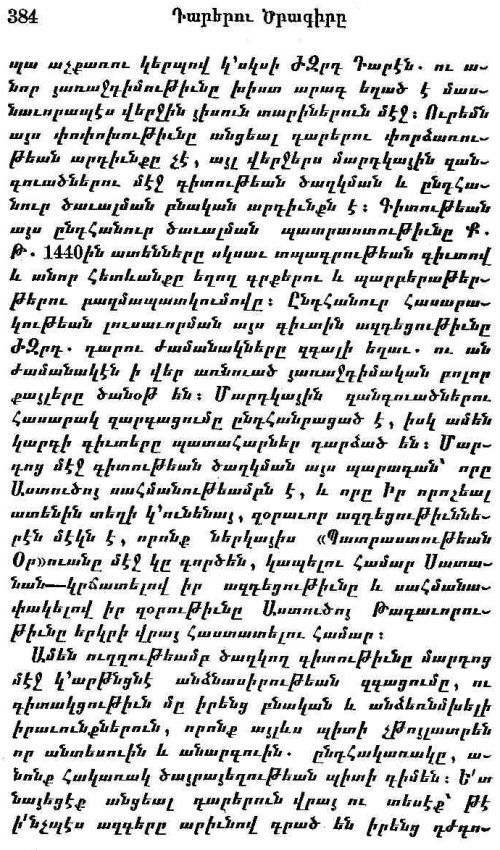 384 Դարերու Ծրագիրը
պա աչքառու կերպով կ՚սկսի ԺԶրդ Դարէն. ու ա-
նոր յառաջդիմութիւնը խիստ արագ եղած է մաս-
նաւորապէս վերջին յիսուն տարիներուն մէջ: Ուրեմն
այս փոփոխութիւնը անցեալ դարերու փորձառու-
թեան արդիւնքը չէ, այլ վերջերս մարդկային զան-
գուածներու մէջ գիտութեան ծաղկման և ընդհա-
նուր ծաւալման բնական արդիւնքն է: Գիտութեան
այս ընդհանուր ծաւալման պատրաստութիւնը Ք.
Թ. 1440ին ատենները սկսաւ տպագրութեան գիւտով
և անոր հետևանքը եղող գրքերու և պարբերաթեր-
թերու բազմապատկումովը: Ընդհանուր հասարա-
կութեան լուսաւորման այս գիւտին ազդեցութիւնը
ԺԶրդ. դարու ժամանակները զգալի եղաւ. ու ան
ժամանակէն ի վեր առնուած յառաջդիմական բոլոր
քայլերը ծանօթ են: Մարդկային զանգուածներու
հասարակ զարգացումը ընդհանրացած է, իսկ ամեն
կարգի գիւտերը պատահարներ դարձած են: Մար-
դոց մէջ գիտութեան ծաղկման այս պարագան՝ որը
Աստուծոյ սահմանութեամբն է, և որը Իր որոշեալ
ատենին տեղի կ՚ունենայ, զօրաւոր ազդեցութիւննե-
րէն մէկն է, որոնք ներկայիս «Պատրաստութեան
Օր»ուանը մէջ կը գործեն, կապելու համար Սատա-
նան—կրճատելով իր ազդեցութիւնը և սահմանա-
փակելով իր զօրութիւնը Աստուծոյ Թագաւորու-
թիւնը երկրի վրայ հաստատելու համար:
Ամեն ուղղութեամբ ծաղկող գիտութիւնը մարդոց
մէջ կ՚արթնցնէ անձնասիրութեան զգացումը, ու
գիտակցութիւն մը իրենց բնական և անձեռնմխելի
իրաւունքներուն, որոնք այլևս պիտի չթոյլատրեն
որ անտեսուին և անարգուին. ընդհակառակը, ա-
նոնք հակառակ ծայրայեղութեան պիտի դիմեն: Ե՛տ
նայեցէք անցեալ դարերուն վրայ ու տեսէք՝ թէ
ի՛նչպէս ազգերը արիւնով գրած են իրենց դժգո-